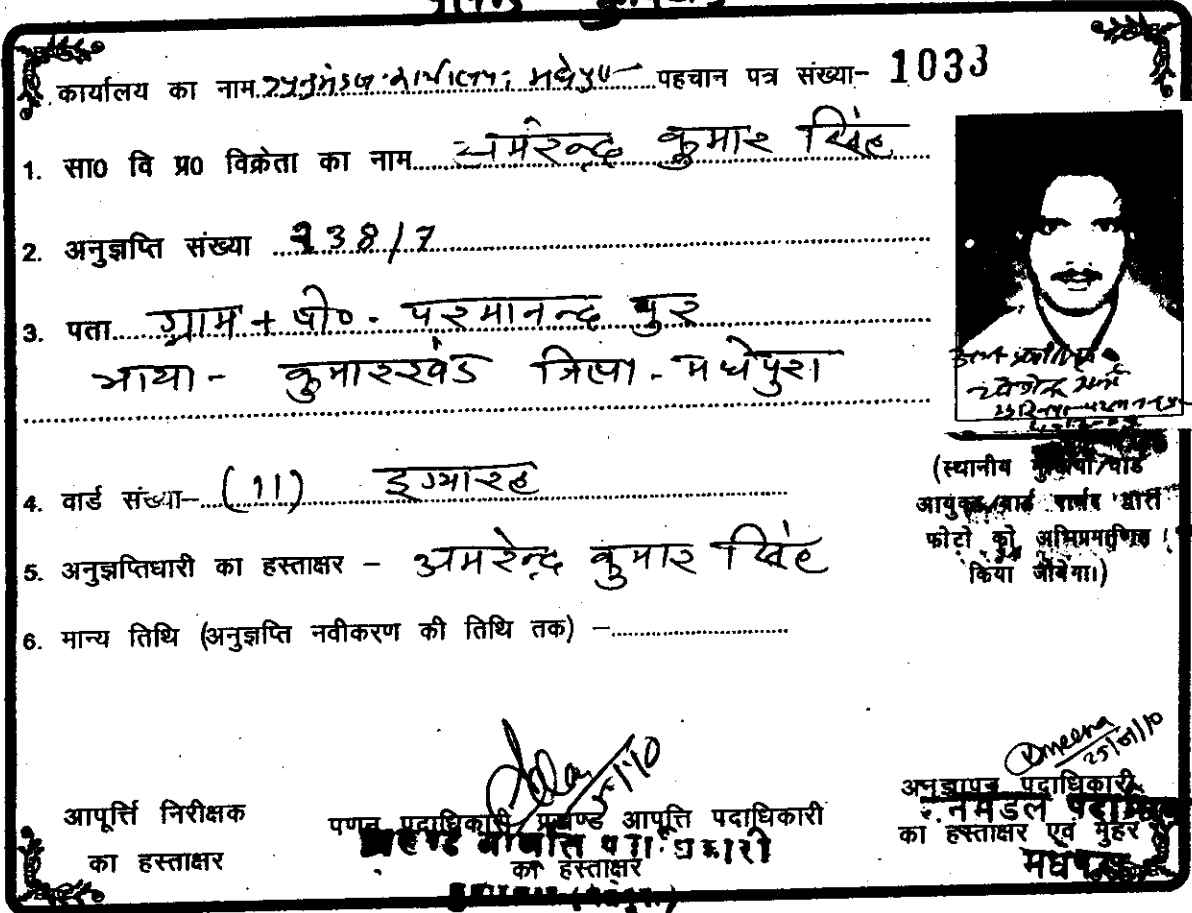 कार्यालय का नाम अनुमंडल कार्यालय, मधेपुरा पहचान पत्र संख्या- 1033
1. सा0 वि प्र0 विक्रेता का नाम अमरेन्द्र कुमार सिंह
2. अनुज्ञप्ति संख्या 238/7
3. पता ग्राम + पो० - परमानन्द पुर
भाया - कुमारखंड जिला - मधेपुरा
4. वार्ड संख्या- (11) इग्यारह
5. अनुज्ञप्तिधारी का हस्ताक्षर - अमरेन्द्र कुमार सिंह
6. मान्य तिथि (अनुज्ञप्ति नवीकरण की तिथि तक) -
(स्थानीय मुखिया/वार्ड
आयुक्त/वार्ड पार्षद द्वारा
फोटो को अभिप्रमाणित
किया जायेगा।)
आपूर्त्ति निरीक्षक
का हस्ताक्षर
पणन पदाधिकारी/प्रखण्ड आपूर्ति पदाधिकारी
का हस्ताक्षर
अनुज्ञापन पदाधिकारी
का हस्ताक्षर एवं मुहर